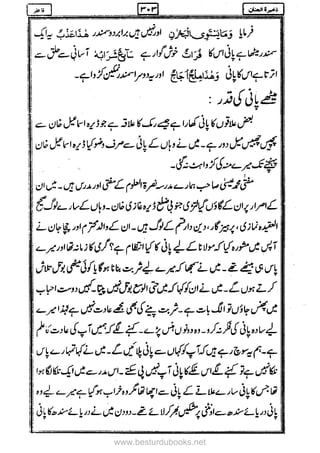 ذخیرۃ الجنان
۳۰۳
فاطر
فرمایا وَمَا يَسْتَوِي الْبَحْرٰنِ اور نہیں ہیں برابر دو سمندر هٰذَا عَذْبٌ یہ ایک
سمندر ہے میٹھا پانی اس کا فُرَاتٌ خوش گوار ہے سَآئِغٌ شَرَابُهٗ آسانی سے حلق سے
اترتا ہے اس کا پانی وَهٰذَا مِلْحٌ اُجَاجٌ اور یہ دوسرا سمندر نمکین کڑوا ہے۔
میٹھے پانی کی قدر :
بعض علاقوں کا پانی کھارا ہے جیسے ہمارے علاقہ ہے جو ڈیرہ اسماعیل خان سے
پچیس میل دور ہے۔ میں نے وہاں کے پانی سے صرف وضو کیا ڈیرہ اسماعیل خان
تک پہنچنے تک میرے منہ کی کڑواہٹ نہ گئی۔
مفتی محمد عیسیٰ صاحب ہمارے مدرسہ نصرۃ العلوم کے مفتی اور مدرس ہیں۔ میں ان
کے اصرار پر ان کے گاؤں گیا ضلع ڈیرہ غازی خان۔ وہاں کے سارے لوگ صحیح
العقیدہ نمازی، پرہیزگار، دین دار قسم کے لوگ ہیں۔ ان کے والد محترم اور نانے جان نے
آپس میں مشورہ کیا کہ مولانا کے لیے پانی کا کیا انتظام ہے؟ گرمی کا زمانہ تھا اور میرے
پاس ہی بیٹھے تھے۔ میں نے سمجھا کہ میرے لیے شربت بنانا ہوگا یا کوئی میٹھی بوتل تلاش
کرتے ہوں گے۔ میں نے ان کو کہا کہ میں حتی الوسع بوتل نہیں پیتا۔ کہیں دوست احباب
میں پھنس جاؤں تو الگ بات ہے۔ شربت پینے کی بھی مجھے عادت نہیں ہے لہٰذا میرے
لیے سادہ پانی کی فکر نہ کرو۔ وہ دونوں ہنس پڑے۔ کہنے لگے کہ ہمیں آپ کی عادت کا علم
ہے۔ ہم یہ سوچ رہے ہیں کہ آپ کو کہاں سے پانی پلائیں گے۔ میں نے کہا تمہارے پاس
نلکا نہیں ہے؟ کہنے لگے اس نلکے کا پانی آپ نہیں پی سکتے۔ اس مدرسے میں ایک نلکا لگا ہوا
تھا جس کا پانی سارے علاقے کے پانی سے اچھا تھا مگر وہ خراب ہو گیا ہے میرے لیے وہ
پانی دریائے سندھ سے اونٹنی پر مشکیں بھر کر لائے تھے۔ دو دن میں نے دریائے سندھ کا پانی
www.besturdubooks.net